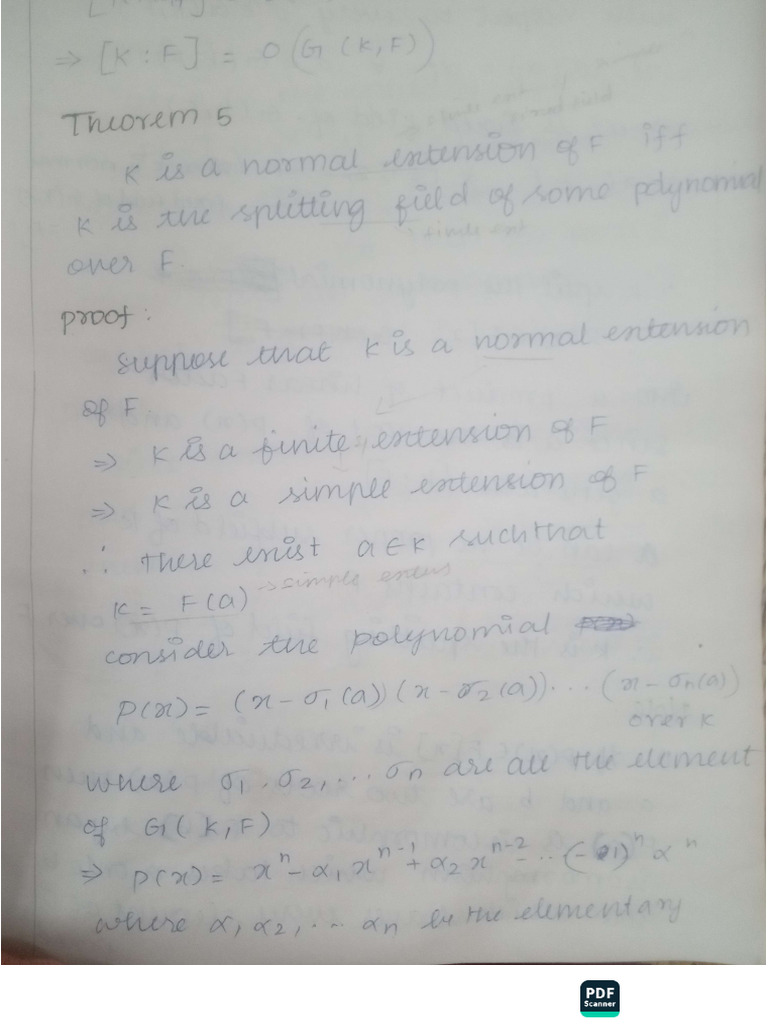 ⇒ [K : F] = O(G(K,F))
Theorem 5
K is a normal extension of F iff
K is the splitting field of some polynomial
over F.
proof:
suppose that K is a normal extension
of F.
⇒ K is a finite extension of F
⇒ K is a simple extension of F
∴ There exist a ∈ K such that
K = F(a) → simple exten
consider the polynomial
p(x) = (x - σ₁(a)) (x - σ₂(a)) ... (x - σn(a))
over K
where σ₁, σ₂, ... σn are all the element
of G(K,F)
⇒ p(x) = xⁿ - α₁ xⁿ⁻¹ + α₂ xⁿ⁻² - .. (-1)ⁿ αⁿ
where α₁ α₂, ... αn be the elementary
PDF
Scanner